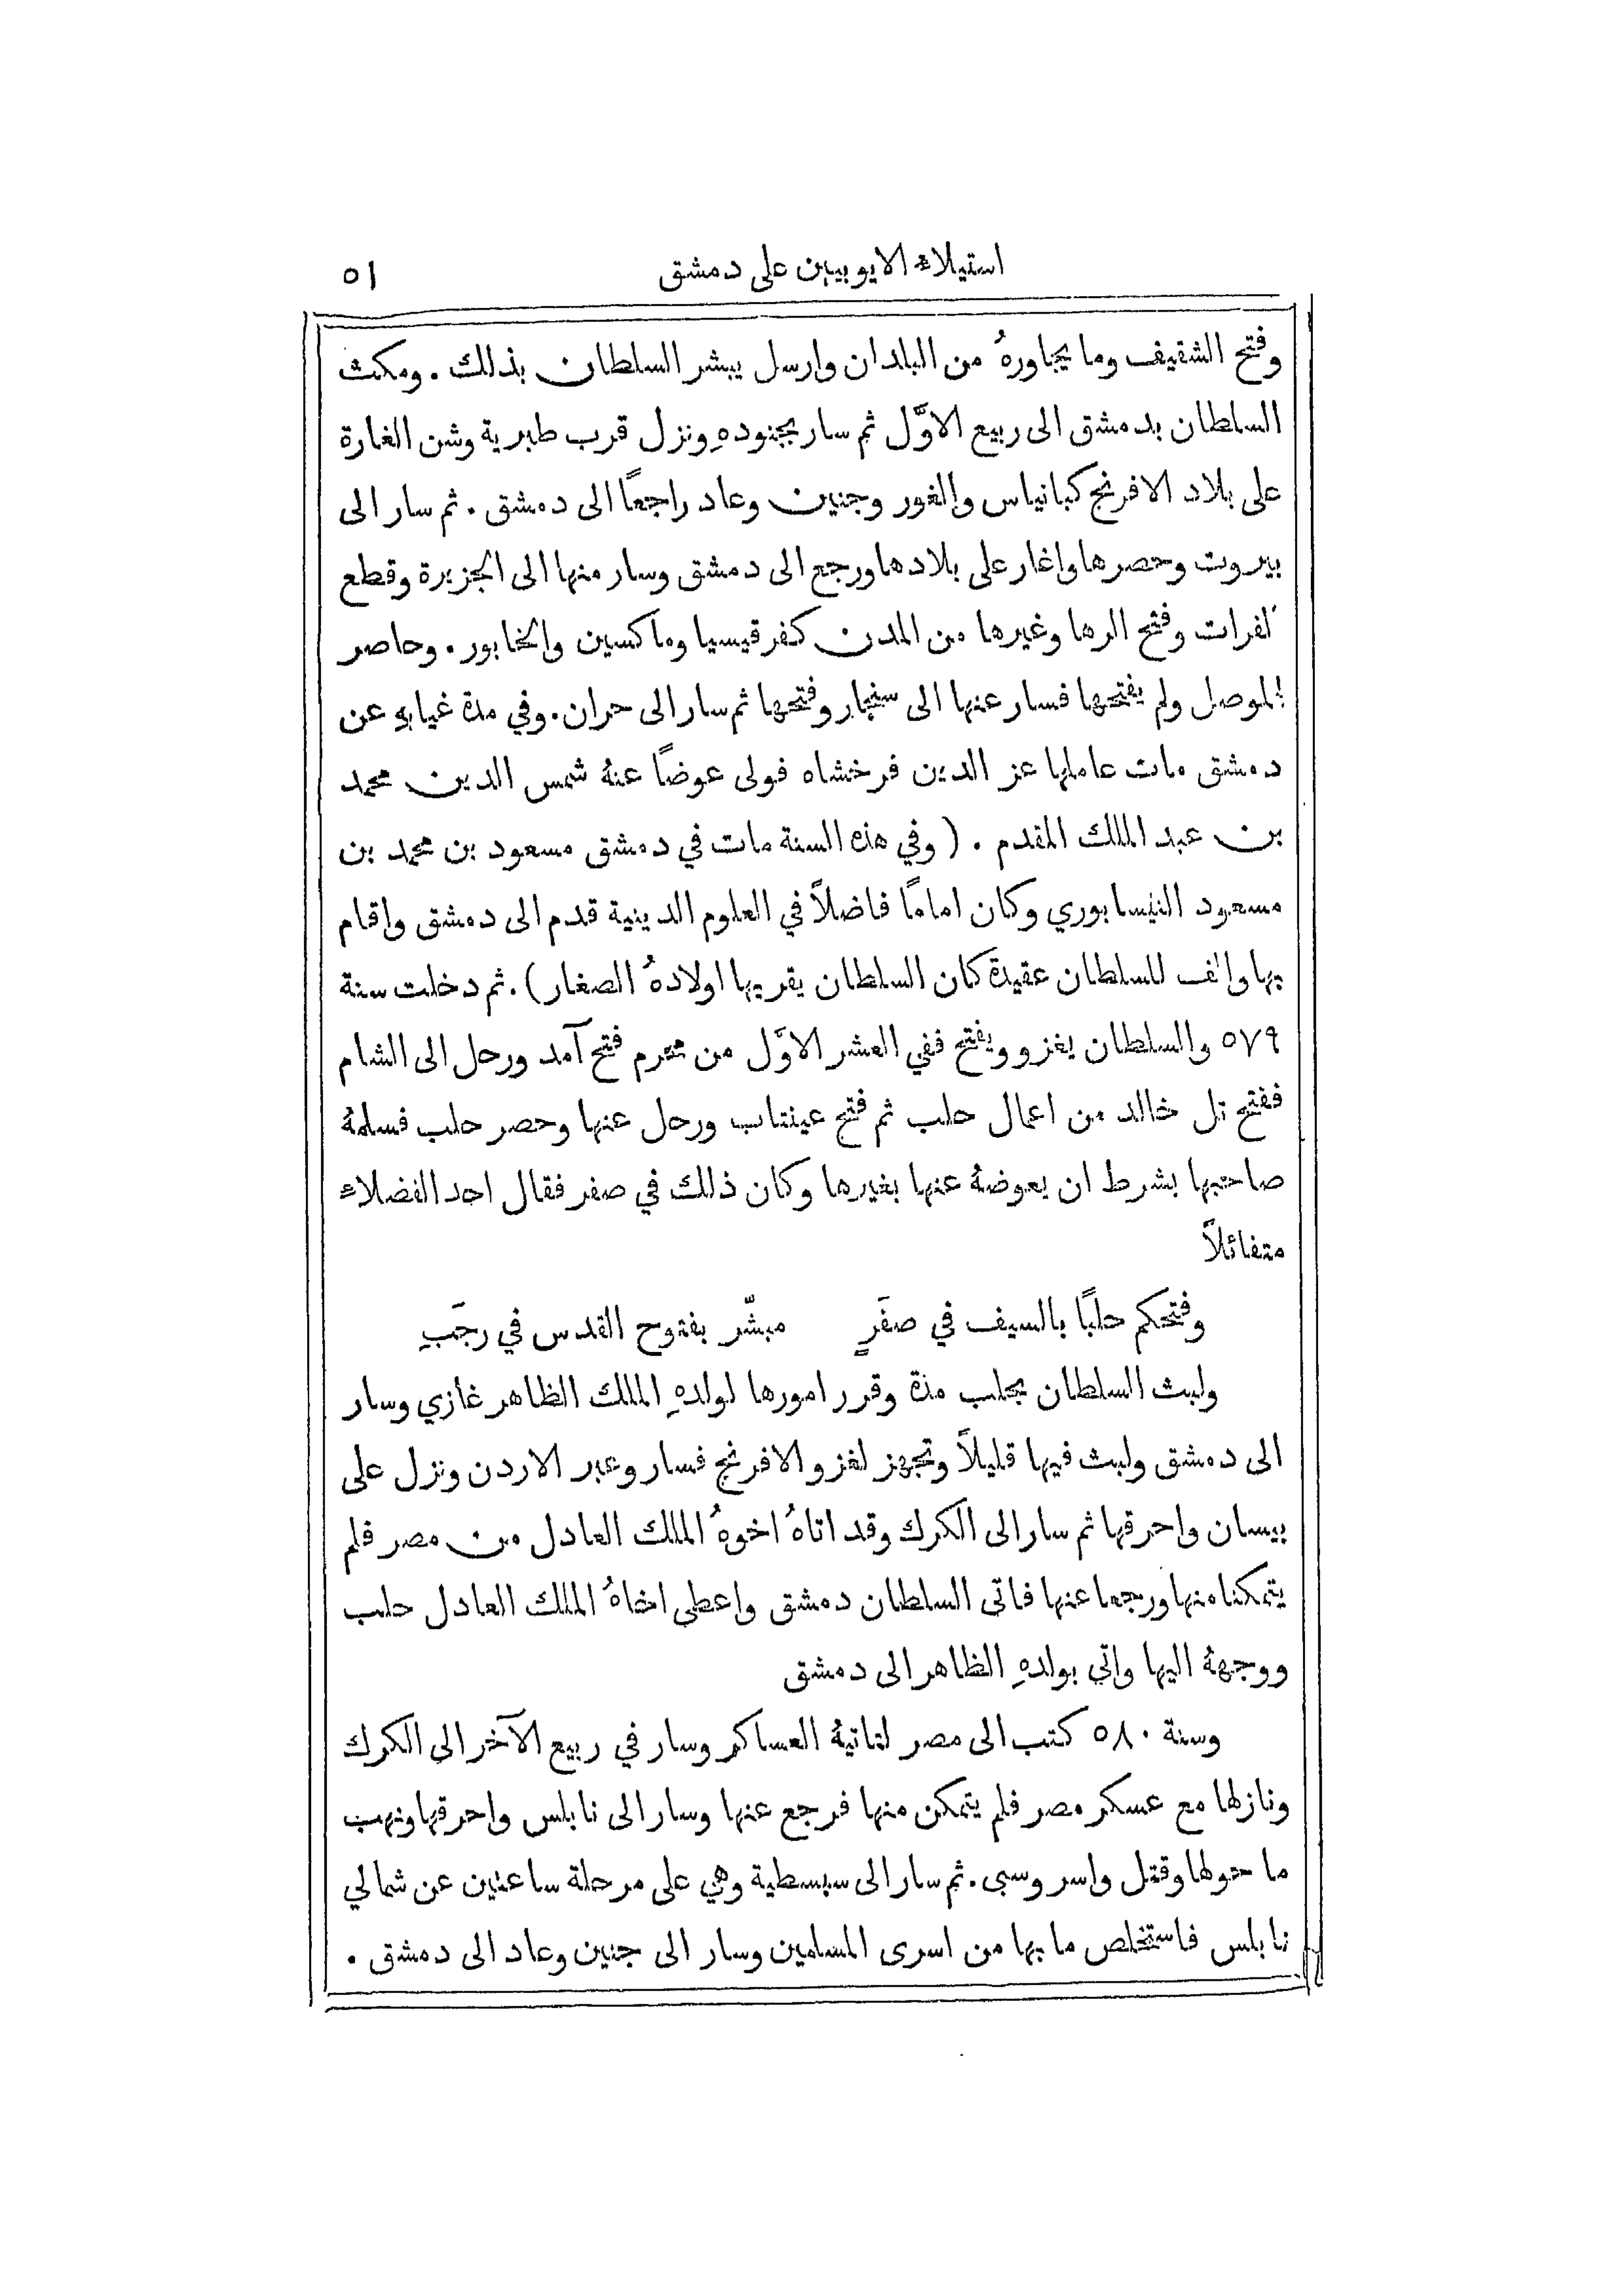 استيلاء الايوبيين على دمشق ٥١
وفتح الشقيف وما يجاورهُ من البلدان وارسل يبشر السلطان بذلك . ومكث
السلطان بدمشق الى ربيع الاوَّل ثم سار بجنودهِ ونزل قرب طبرية وشن الغارة
على بلاد الافرنج كبانياس والغور وجنين وعاد راجعًا الى دمشق . ثم سار الى
بيروت وحصرها واغار على بلادها ورجع الى دمشق وسار منها الى الجزيرة وقطع
الفرات وفتح الرها وغيرها من المدن كفرقيسيا وماكسين والخابور . وحاصر
الموصل ولم يفتحها فسار عنها الى سنجار وفتحها ثم سار الى حران . وفي مدة غيابهِ عن
دمشق مات عاملها عز الدين فرخشاه فولى عوضًا عنهُ شمس الدين محمد
بن عبد الملك المقدم . ( وفي هذه السنة مات في دمشق مسعود بن محمد بن
مسعود النيسابوري وكان امامًا فاضلاً في العلوم الدينية قدم الى دمشق واقام
بها والف للسلطان عقيدة كان السلطان يقريها اولادهُ الصغار ) . ثم دخلت سنة
٥٧٩ والسلطان يغزو ويفتح ففي العشر الاوَّل من محرم فتح آمد ورحل الى الشام
ففتح تل خالد من اعمال حلب ثم فتح عينتاب ورحل عنها وحصر حلب فسلمهُ
صاحبها بشرط ان يعوضهُ عنها بغيرها وكان ذلك في صفر فقال احد الفضلاء
متفائلاً
وفتحكم حلبًا بالسيف في صفَرٍ مبشّر بفتوح القدس في رجَبِ
ولبث السلطان بحلب مدة وقرر امورها لولدهِ الملك الظاهر غازي وسار
الى دمشق ولبث فيها قليلاً وتجهز لغزو الافرنج فسار وعبر الاردن ونزل على
بيسان واحرقها ثم سار الى الكرك وقد اتاهُ اخوهُ الملك العادل من مصر فلم
يتمكنا منها ورجعا عنها فاتى السلطان دمشق واعطى اخاهُ الملك العادل حلب
ووجههُ اليها واتي بولدهِ الظاهر الى دمشق
وسنة ٥٨٠ كتب الى مصر لتاتيهُ العساكر وسار في ربيع الآخر الى الكرك
ونازلها مع عسكر مصر فلم يتمكن منها فرجع عنها وسار الى نابلس واحرقها ونهب
ما حولها وقتل واسر وسبى . ثم سار الى سبسطية وهي على مرحلة ساعتين عن شمالي
نابلس فاستخلص ما بها من اسرى المسلمين وسار الى جنين وعاد الى دمشق .